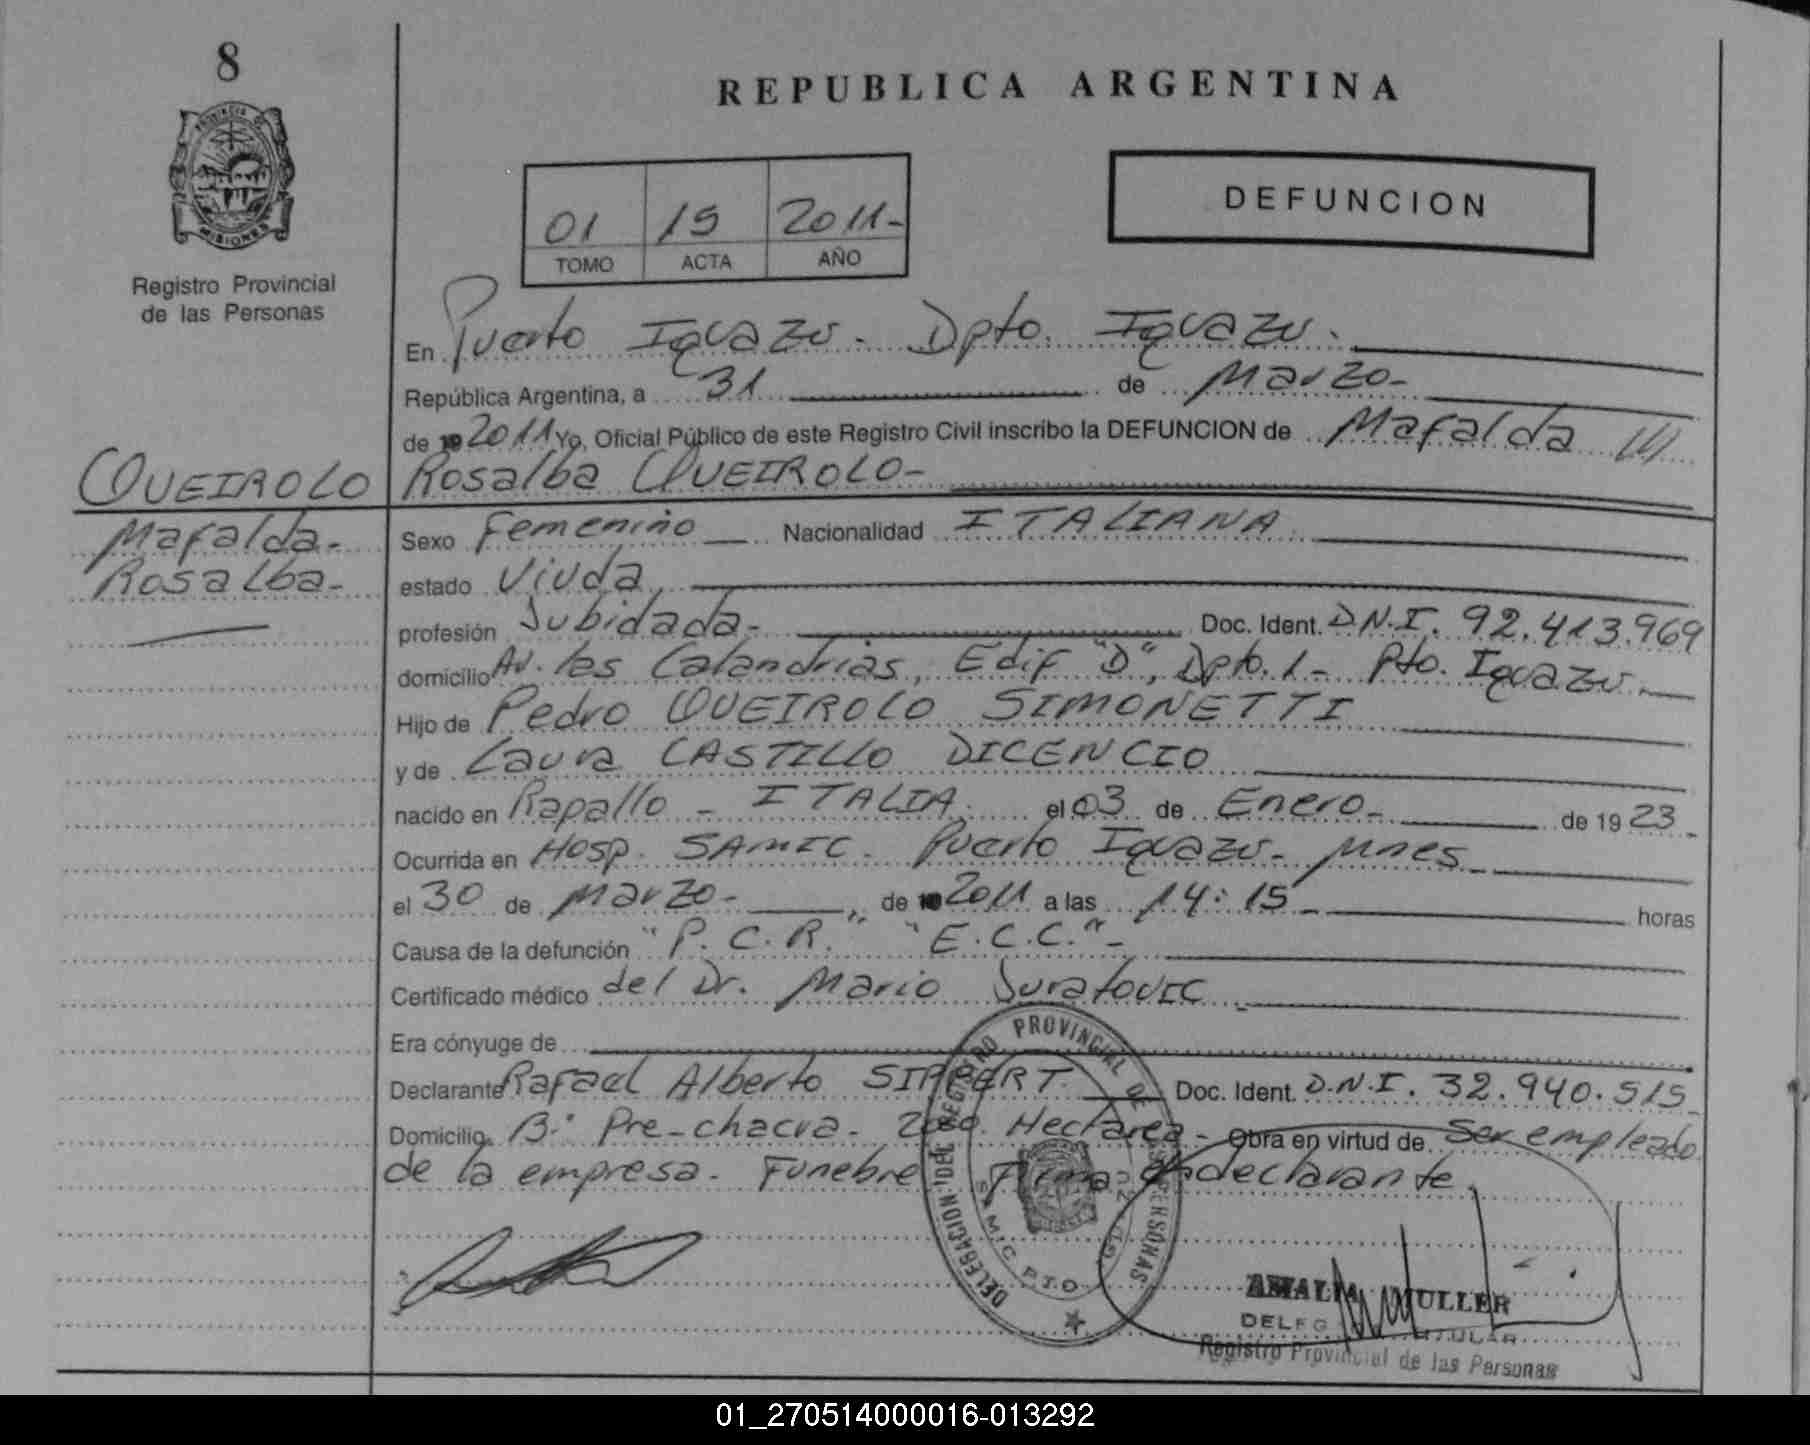 8
REPUBLICA ARGENTINA
PROVINCIA DE
MISIONES
Registro Provincial
de las Personas
01 15 2011-
TOMO ACTA AÑO
DEFUNCION
En Puerto Iguazu. Dpto. Iguazu.
República Argentina, a 31 de Marzo-
de 2011 Yo, Oficial Público de este Registro Civil inscribo la DEFUNCION de Mafalda
QUEIROLO Rosalba QUEIROLO-
Mafalda- Sexo Femenino Nacionalidad ITALIANA
Rosalba- estado Viuda
profesión Jubidada- Doc. Ident. D.N.I. 92.413.969
domicilio Av. las Calandrias, Edif "D", Dpto. 1- Pto. Iguazu.
Hijo de Pedro QUEIROLO SIMONETTI
y de Laura CASTILLO DICENCIO
nacido en Rapallo - ITALIA. el 03 de Enero- de 1923
Ocurrida en Hosp. SAMIC. Puerto Iguazu- Mnes
el 30 de Marzo- de 2011 a las 14:15 horas
Causa de la defunción "P.C.R." "E.C.C."-
Certificado médico del Dr. Mario Juratovic
Era cónyuge de
Declarante Rafael Alberto SIPPERT Doc. Ident. D.N.I. 32.940.515
Domicilio B° Pre-chacra. 2000 Hectarea- Obra en virtud de Ser empleado
de la empresa. Funebre Firma declarante.
DELEGACION DEL REGISTRO PROVINCIAL DE LAS PERSONAS
S.A.M.I.C. PTO. IGUAZU
AMALIA MULLER
Registro Provincial de las Personas
01_270514000016-013292